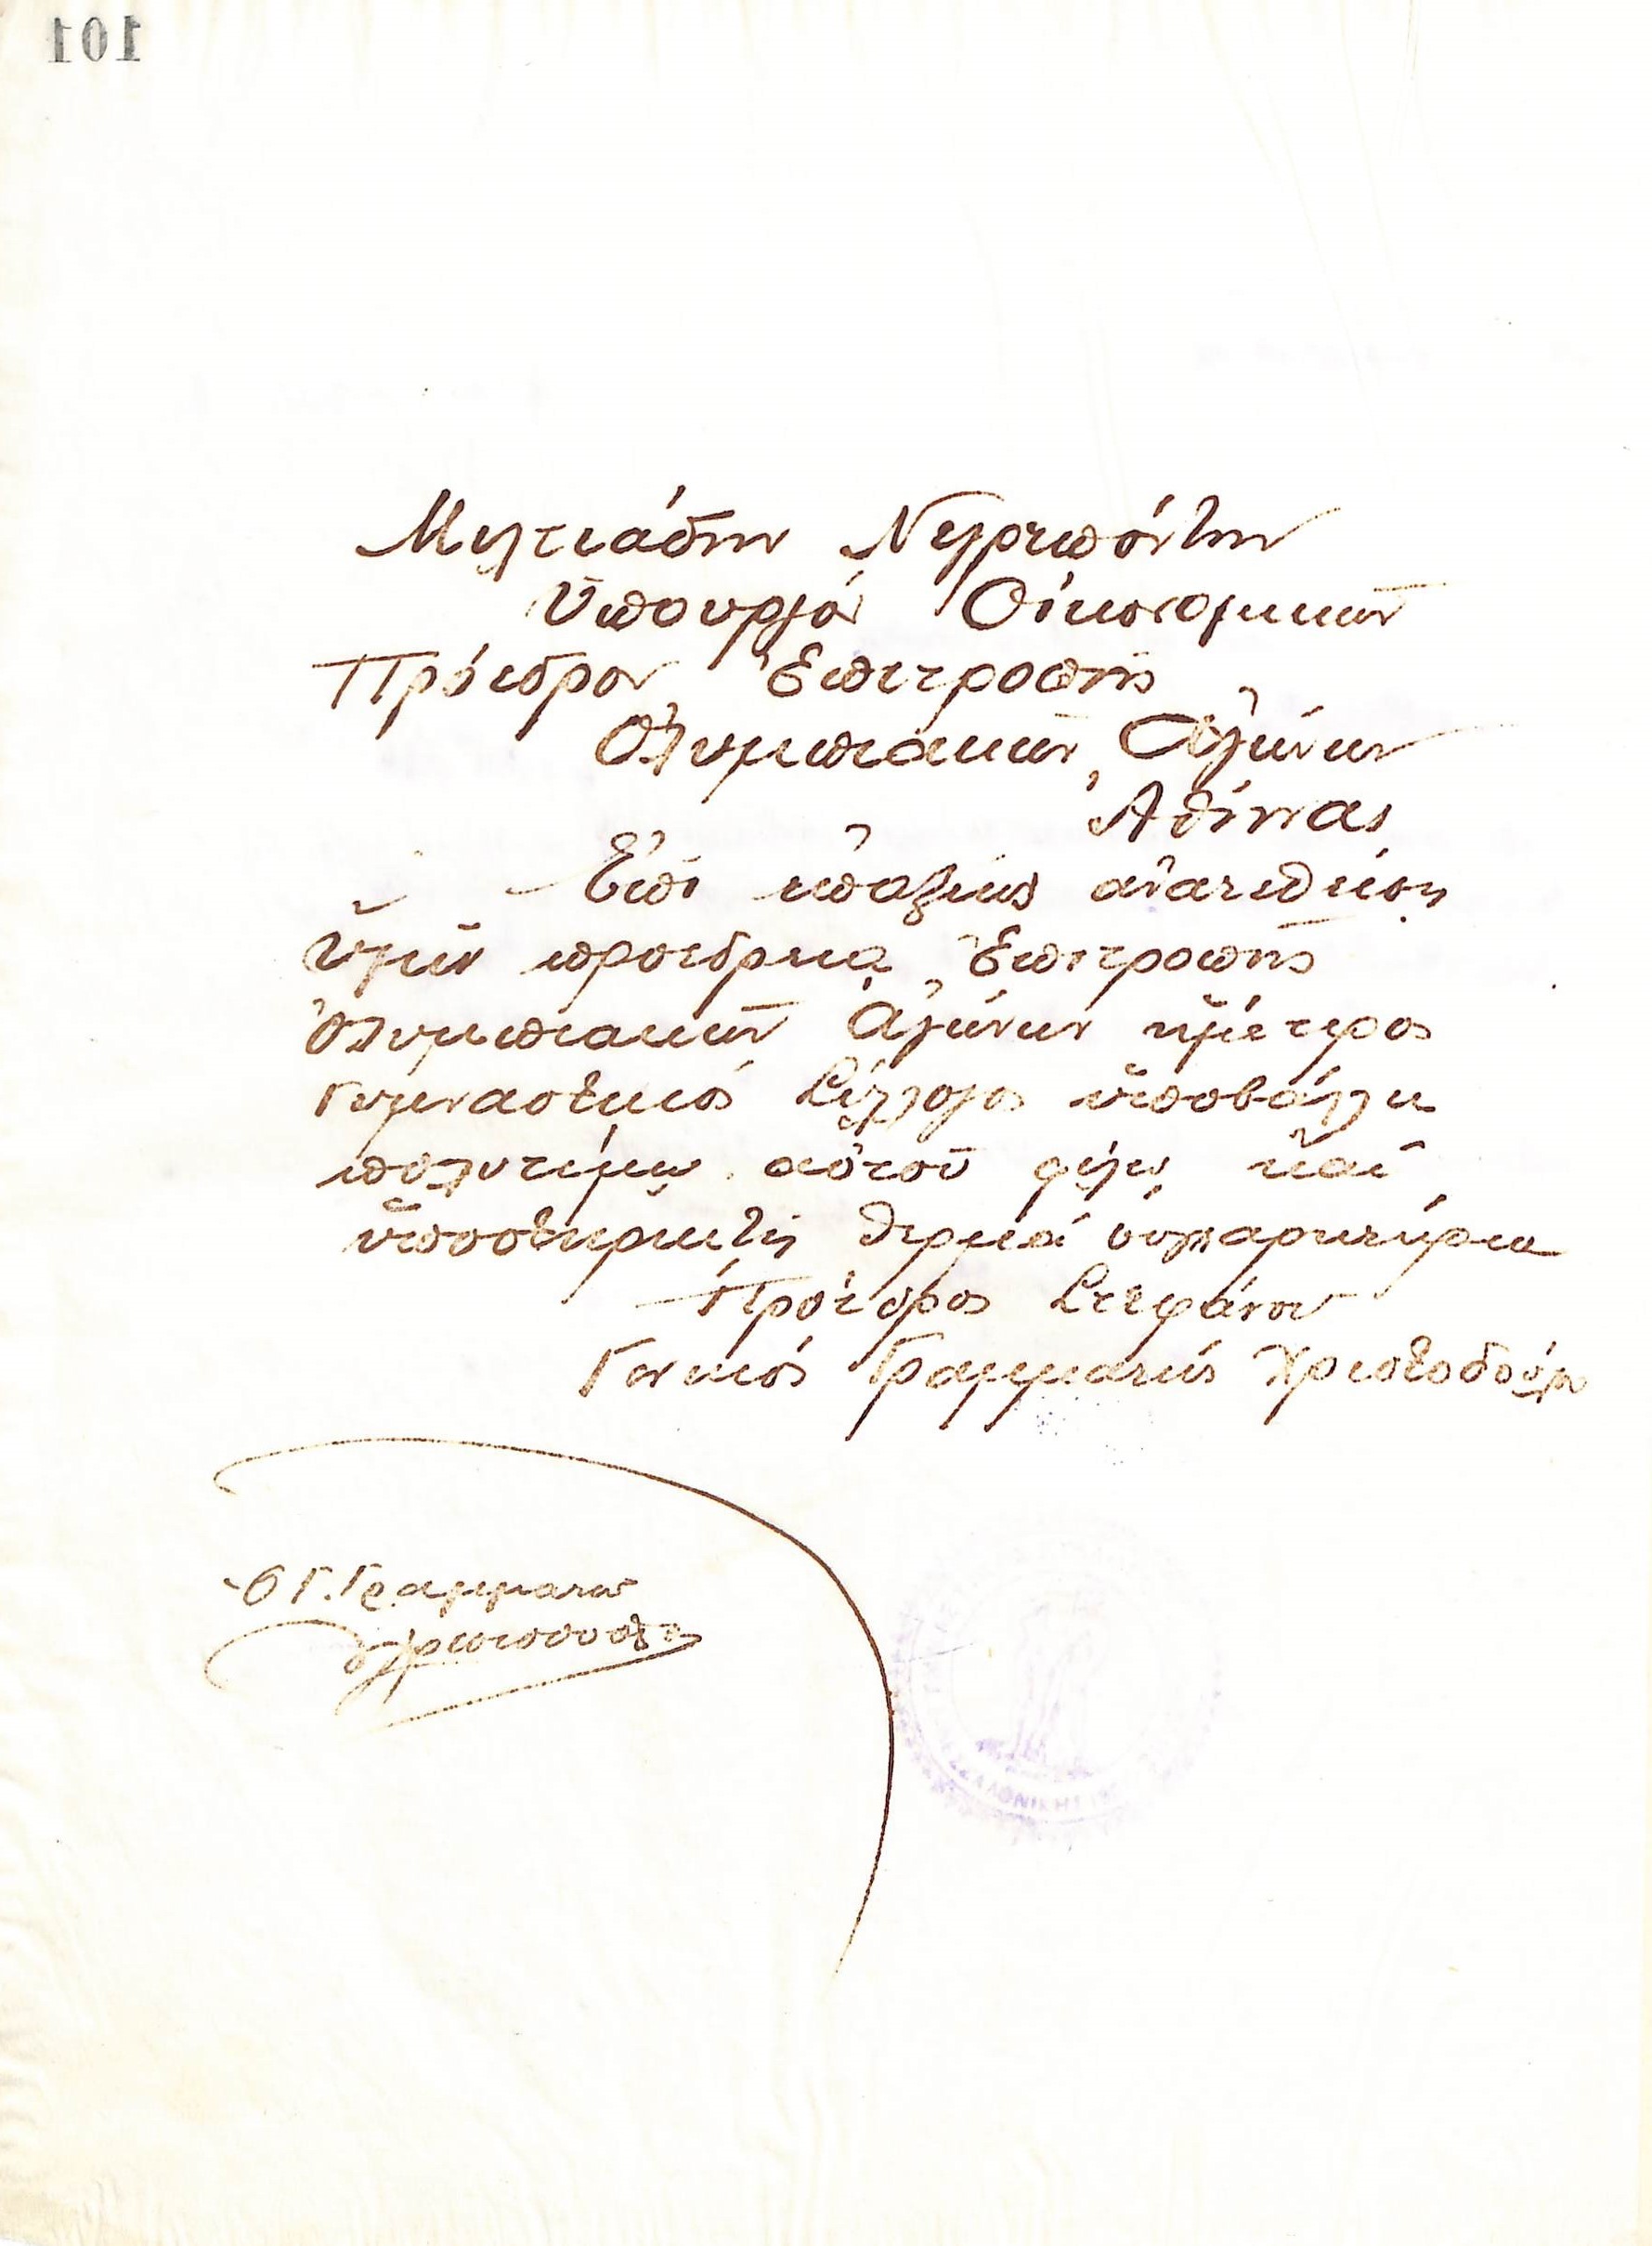 101
Μιλτιάδην Νεγρεπόντην
Ὑπουργόν Οἰκονομικῶν
Πρόεδρον Ἐπιτροπῆς
Ὀλυμπιακῶν Ἀγώνων
Ἀθήνας
Ἐπὶ ἐπαξίως ἀνατεθείσῃ
ὑμῖν προεδρείᾳ Ἐπιτροπῆς
Ὀλυμπιακῶν Ἀγώνων ἡμέτερος
Γυμναστικός Σύλλογος ὑποβάλλει
πολυτίμῳ αὐτοῦ φίλῳ καί
ὑποστηρικτῇ θερμά συγχαρητήρια
Πρόεδρος Στεφάνου
Γενικός Γραμματεύς Χριστοδούλου
Ὁ Γ. Γραμματεύς